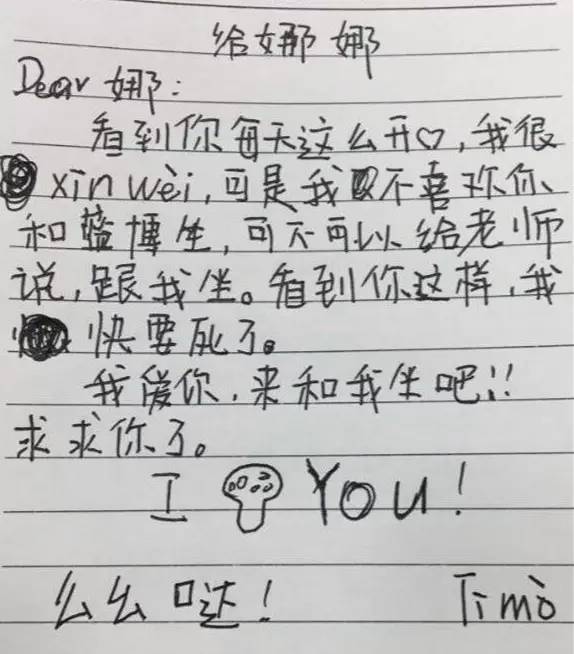 给娜娜
Dear 娜:
看到你每天这么开♡,我很
xin wèi,可是我不喜欢你
和蓝博生,可不可以给老师
说,跟我坐。看到你这样,我
快要死了。
我爱你,来和我坐吧!!
求求你了。
I You!
么么哒!
Timo